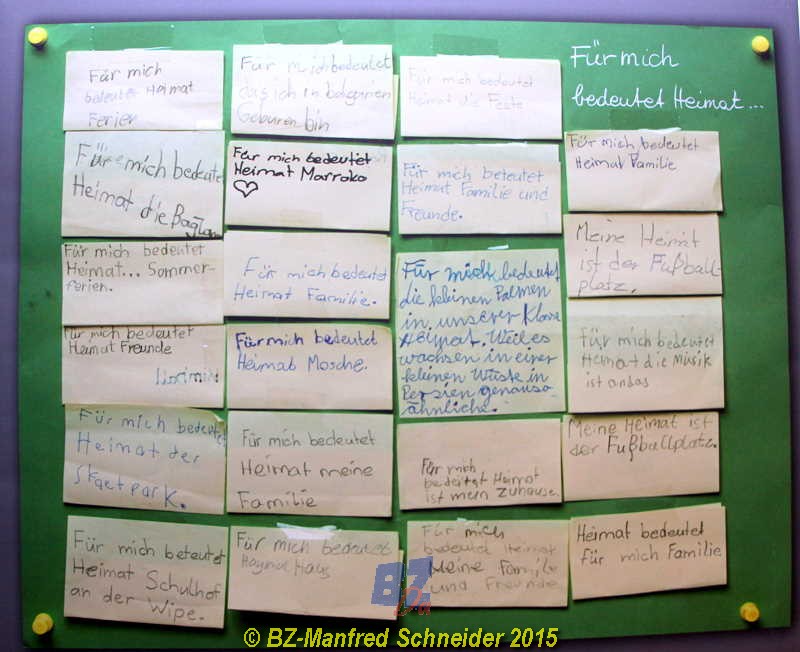 Für mich
bedeutet Heimat...
Für mich
bedeutet Heimat
Ferien
Für mich bedeutet
Heimat die
Für mich bedeutet
Heimat... Sommer-
ferien.
Für mich bedeutet
Heimat Freunde
Für mich bedeutet
Heimat der
Skaetpark.
Für mich beteutet
Heimat Schulhof
an der Wipe.
Für mich bedeutet
das ich in bolgarien
Geburen bin
Für mich bedeutet
Heimat Marroko
♡
Für mich bedeutet
Heimat Familie.
Für mich bedeutet
Heimat Moschee.
Für mich bedeutet
Heimat meine
Familie
Für mich bedeutet
Haus
Für mich bedeutet
Heimat die Feste
Für mich beteutet
Heimat Familie und
Freunde.
Für mich bedeutet
die kleinen Palmen
in unserer Klasse
Heimat. Weil es
wachsen in einer
kleinen Wüste in
Persien genauso
ähnliche.
Für mich
bedeitet Heimat
ist mein zuhause.
Für mich
bedeutet Heimat
Meine Familie
und Freunde
Für mich bedeutet
Heimat Familie
Meine Heimat
ist der Fußball-
platz.
Für mich bedeutet
Heimat die Musik
ist
Meine Heimat ist
der Fußballplatz.
Heimat bedeutet
für mich Familie
BZ
© BZ-Manfred Schneider 2015